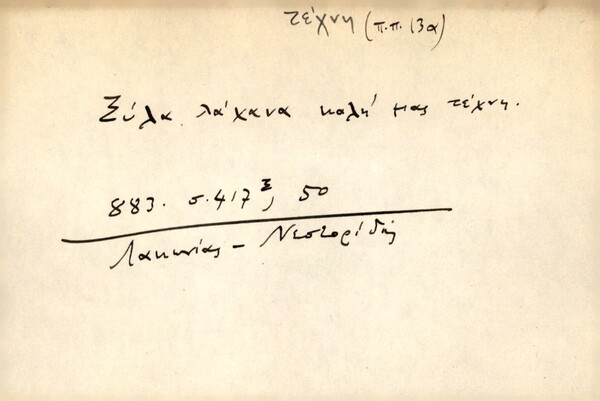 τέχνη (π.π. 13α)
Ξύλα λάχανα καλή μας τέχνη.
883. σ. 417 Ξ, 50
Λακωνίας - Νεστορίδης